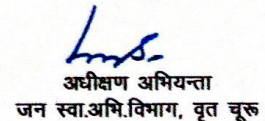 अधीक्षण अभियन्ता
जन स्वा.अभि.विभाग, वृत चूरू